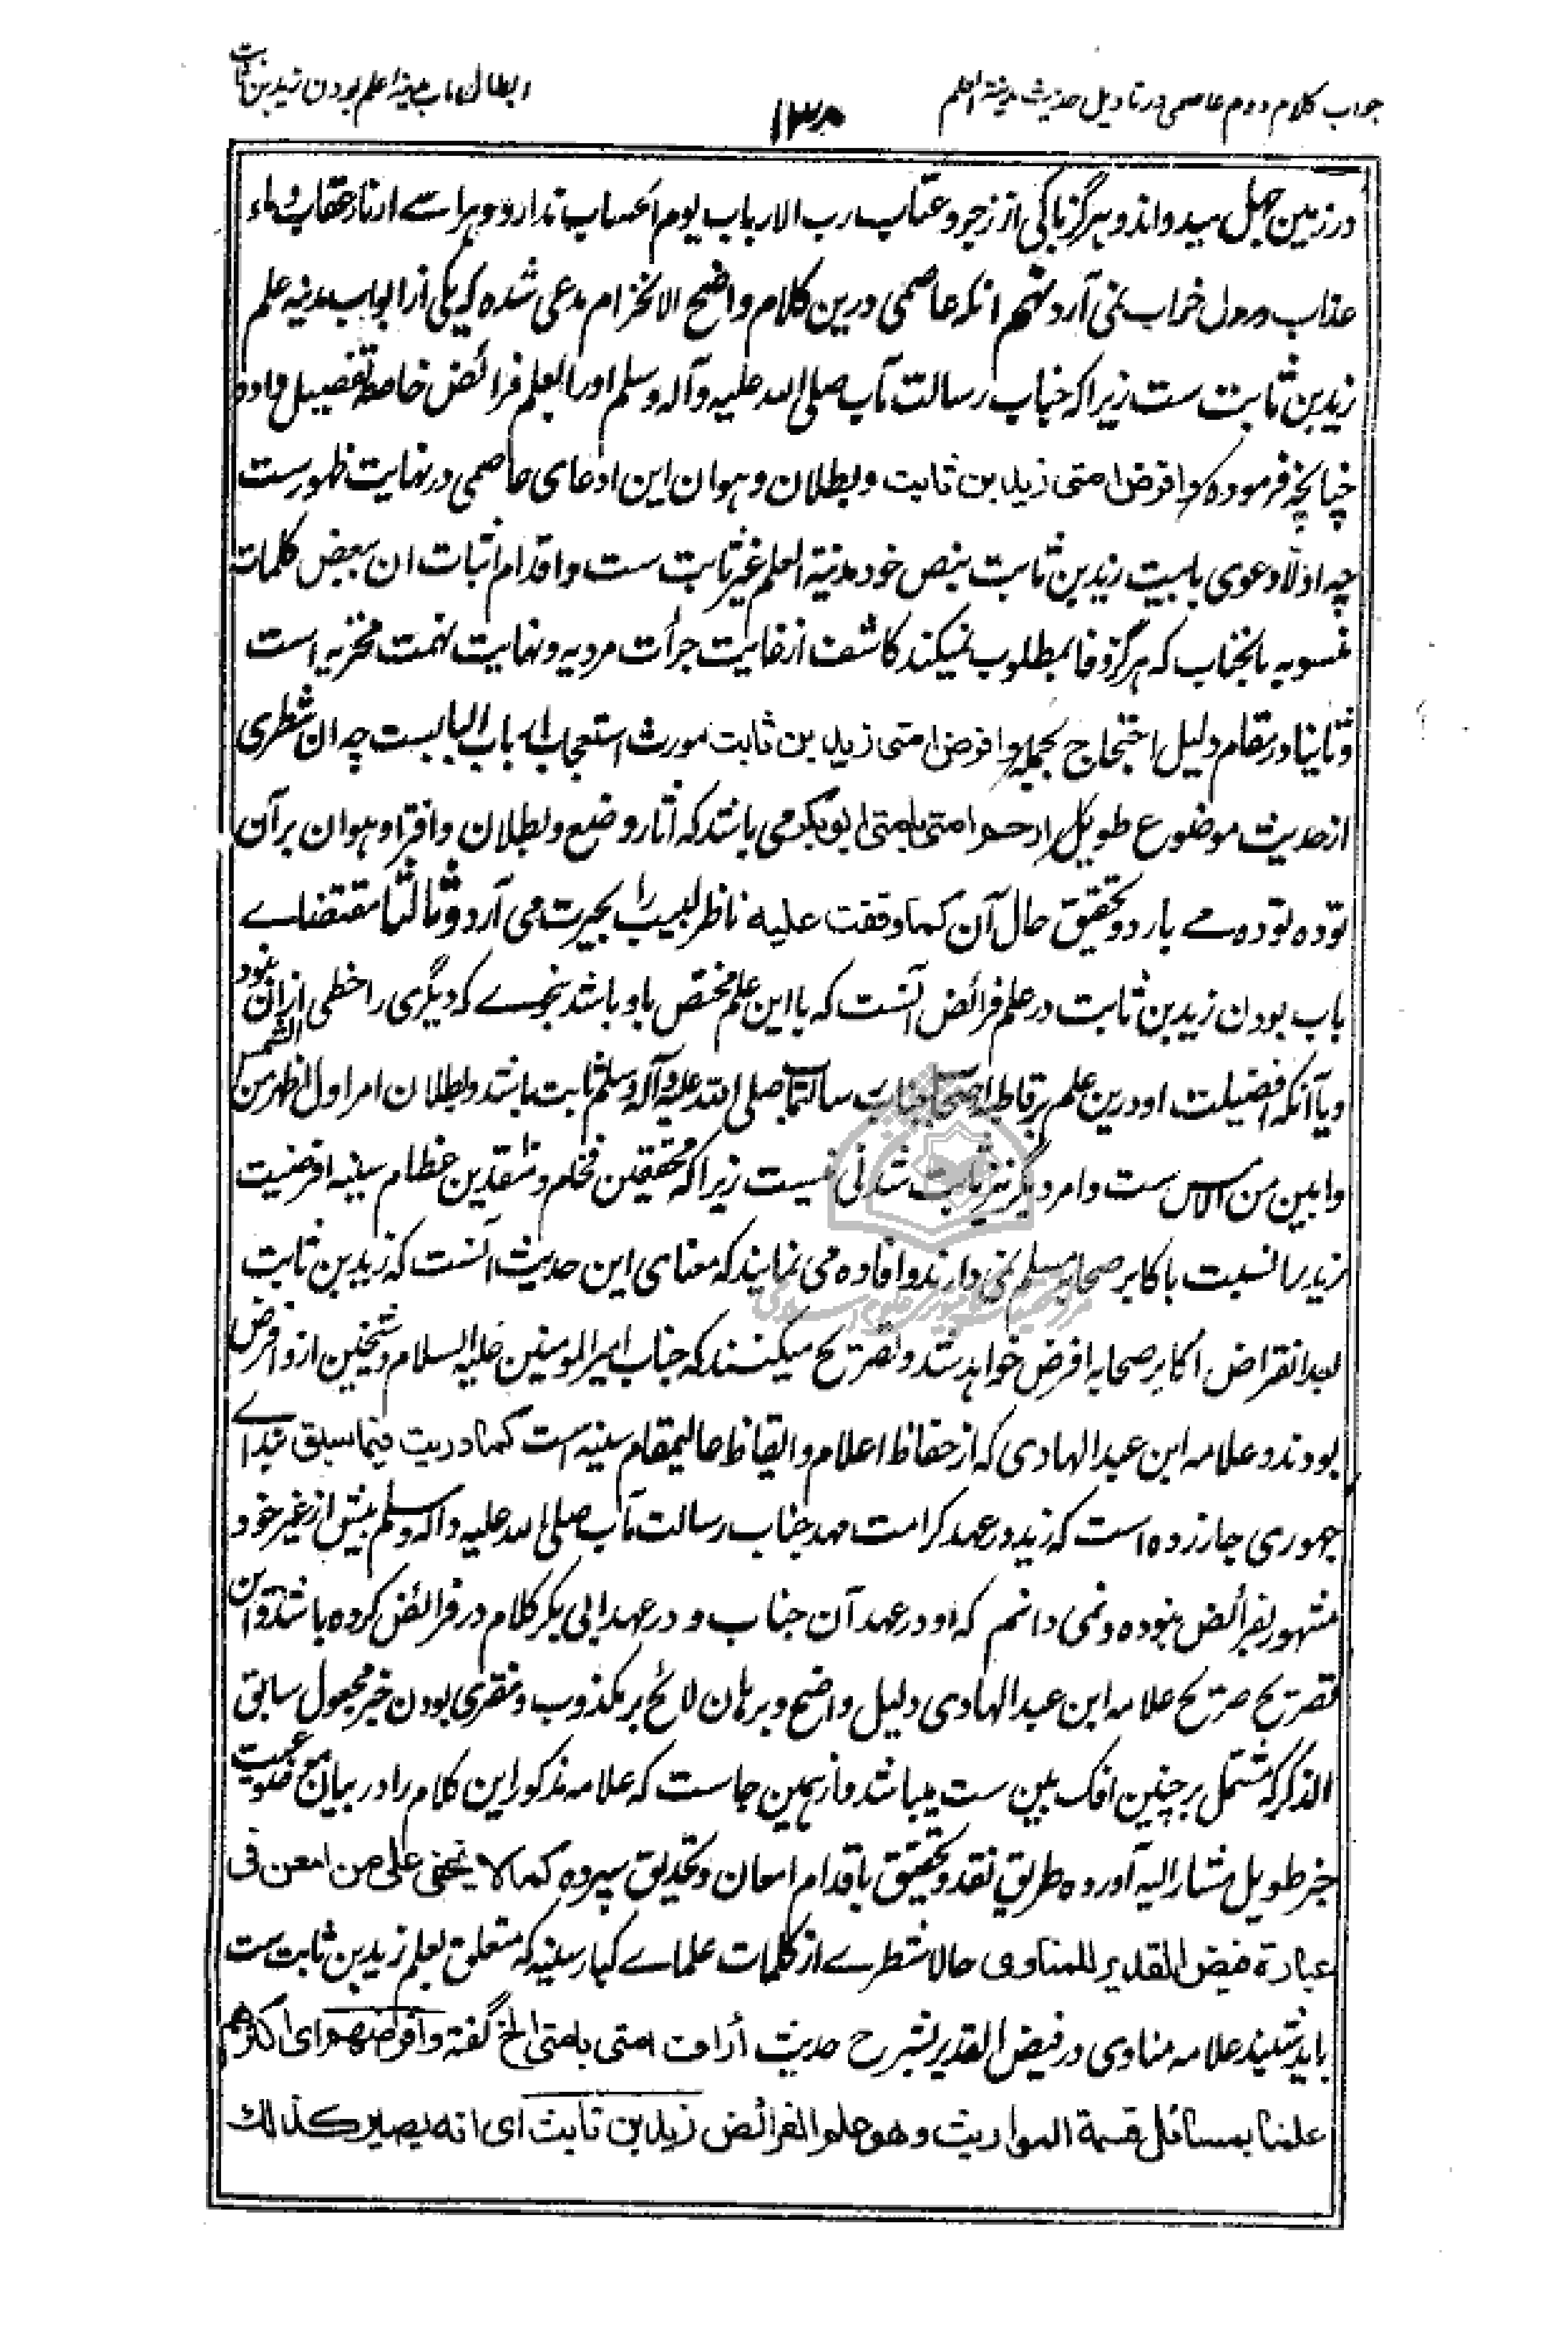 جواب کلام دوم عاصمی در تاویل حدیث مدینة العلم
۱۳۸
ابطال باب مدینه علم بودن زید بن ثابت
در زمین جهل میدواند و هرگز باکی از زجر و عتاب رب الارباب یوم الحساب ندارد و هراسے از نار عقاب و ماء
عذاب بدل خراب نمی آرد نهم انکه عاصمی درین کلام واضح الانخرام مدعی شده که یکی از ابواب مدینه علم
زید بن ثابت ست زیرا که جناب رسالت مآب صلی الله علیه وآله وسلم او را بعلم فرائض خاصة تفضیل داده
چنانچه فرموده و افرض امتی زید بن ثابت و بطلان و هوان این ادعای عاصمی در نهایت ظهورست
چه اولا دعوی بابیت زید بن ثابت بنص خود مدینة العلم غیر ثابت ست و اقدام اثبات ان ببعض کلمات
منسوبه بانجناب که هرگز وفا بمطلوب نمیکند کاشف از غایت جرأت مردیه و نهایت تهمت مخزیه است
و ثانیا در مقام دلیل احتجاج بجمله و افرض امتی زید بن ثابت مورث استعجاب ارباب البابست چه ان شطری
از حدیث موضوع طویل ارحم امتی بامتی ابوبکر می باشد که آثار وضع و بطلان و افترا و هوان بر آن
توده توده مے بارد و تحقیق حال آن کما وقفت علیه ناظر لبیب را بحیرت می آرد و ثالثا مقتضاے
باب بودن زید بن ثابت در علم فرائض آنست که یا این علم مختص باو باشد بنحوے که دیگری را حظی ازان نبود
و یا آنکه افضلیت او درین علم بر قاطبه اصحاب جناب رسالتمآب صلی الله علیه وآله وسلم ثابت باشد و بطلان امر اول اظهر من الشمس
و ابین من الامس ست و امر دیگر نیز ثابت شدنی نیست زیرا که محققین فخام و منقدین عظام سنیه افرضیت
زید را نسبت باکابر صحابه مسلم نمی دارند و افاده می نمایند که معنای این حدیث آنست که زید بن ثابت
بعد انقراض اکابر صحابه افرض خواهد شد و تصریح میکنند که جناب امیر المومنین علیه السلام و شیخین ازو افرض
بودند و علامه ابن عبد الهادی که از حفاظ اعلام و ایقاظ عالیمقام سنیه است کما دریت فیما سبق بنداے
جهوری جار زده است که زید در عهد کرامت مهد جناب رسالت مآب صلی الله علیه وآله وسلم بیش از غیر خود
مشهور بفرائض نبوده و نمی دانم که او در عهد آن جناب و در عهد ابی بکر کلام در فرائض کرده باشد و این
تصریح صریح علامه ابن عبد الهادی دلیل واضح و برهان لائح بر مکذوب و مفتری بودن خبر مجعول سابق
الذکر که مشتمل بر چنین افک بین ست میباشد و از همین جاست که علامه مذکور این کلام را در بیان موضوعیت
خبر طویل مشار الیه آورده طریق نقد و تحقیق باقدام امعان و تحدیق سپرده کما لا یخفی علی من امعن فی
عبارة فیض القدیر للمناوی حالا شطرے از کلمات علماے کبار سنیه که متعلق بعلم زید بن ثابت ست
باید شنید علامه مناوی در فیض القدیر بشرح حدیث أرأف امتی بامتی الخ گفته وافرضهم ای اکثرهم
علما بمسائل قسمة المواریث وهو علم الفرائض زید بن ثابت ای انه یصیر کذلك